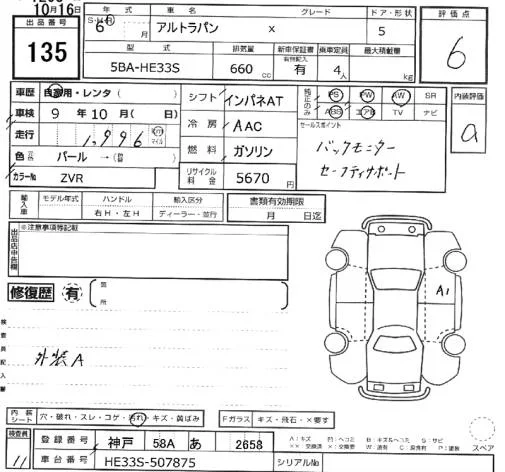 10月16日
出品番号
135
年式 車名 グレード ドア・形状
S・H・R 6 月 アルトラパン X 5
型式 排気量 新車保証書 乗車定員 最大積載量
有・別記入
5BA-HE33S 660 cc 有 4人 kg
評価点
6
車歴 自家用・レンタ ( )
車検 9年10月( 日)
走行 1,996 km マイル
色 パール →( )
カラーNo ZVR
シフト インパネAT
冷房 AAC
燃料 ガソリン
リサイクル料金 5670円
純正のみ PS PW AW SR
ABS エアB TV ナビ
セールスポイント
バックモニター
セーフティサポート
内装評価
a
輸入車 モデル年式 ハンドル 輸入区分
右H・左H ディーラー・並行
書類有効期限
月 日迄
出品店申告欄
※注意事項等記載
修復歴 有
箇所
検査員記入欄
外装A
A1
内装シート 穴・破れ・スレ・コゲ・汚れ・キズ・黄ばみ
Fガラス キズ・飛石・×要す
検査員
11
登録番号 神戸 58A あ 2658
車台番号 HE33S-507875
シリアルNo
スペア